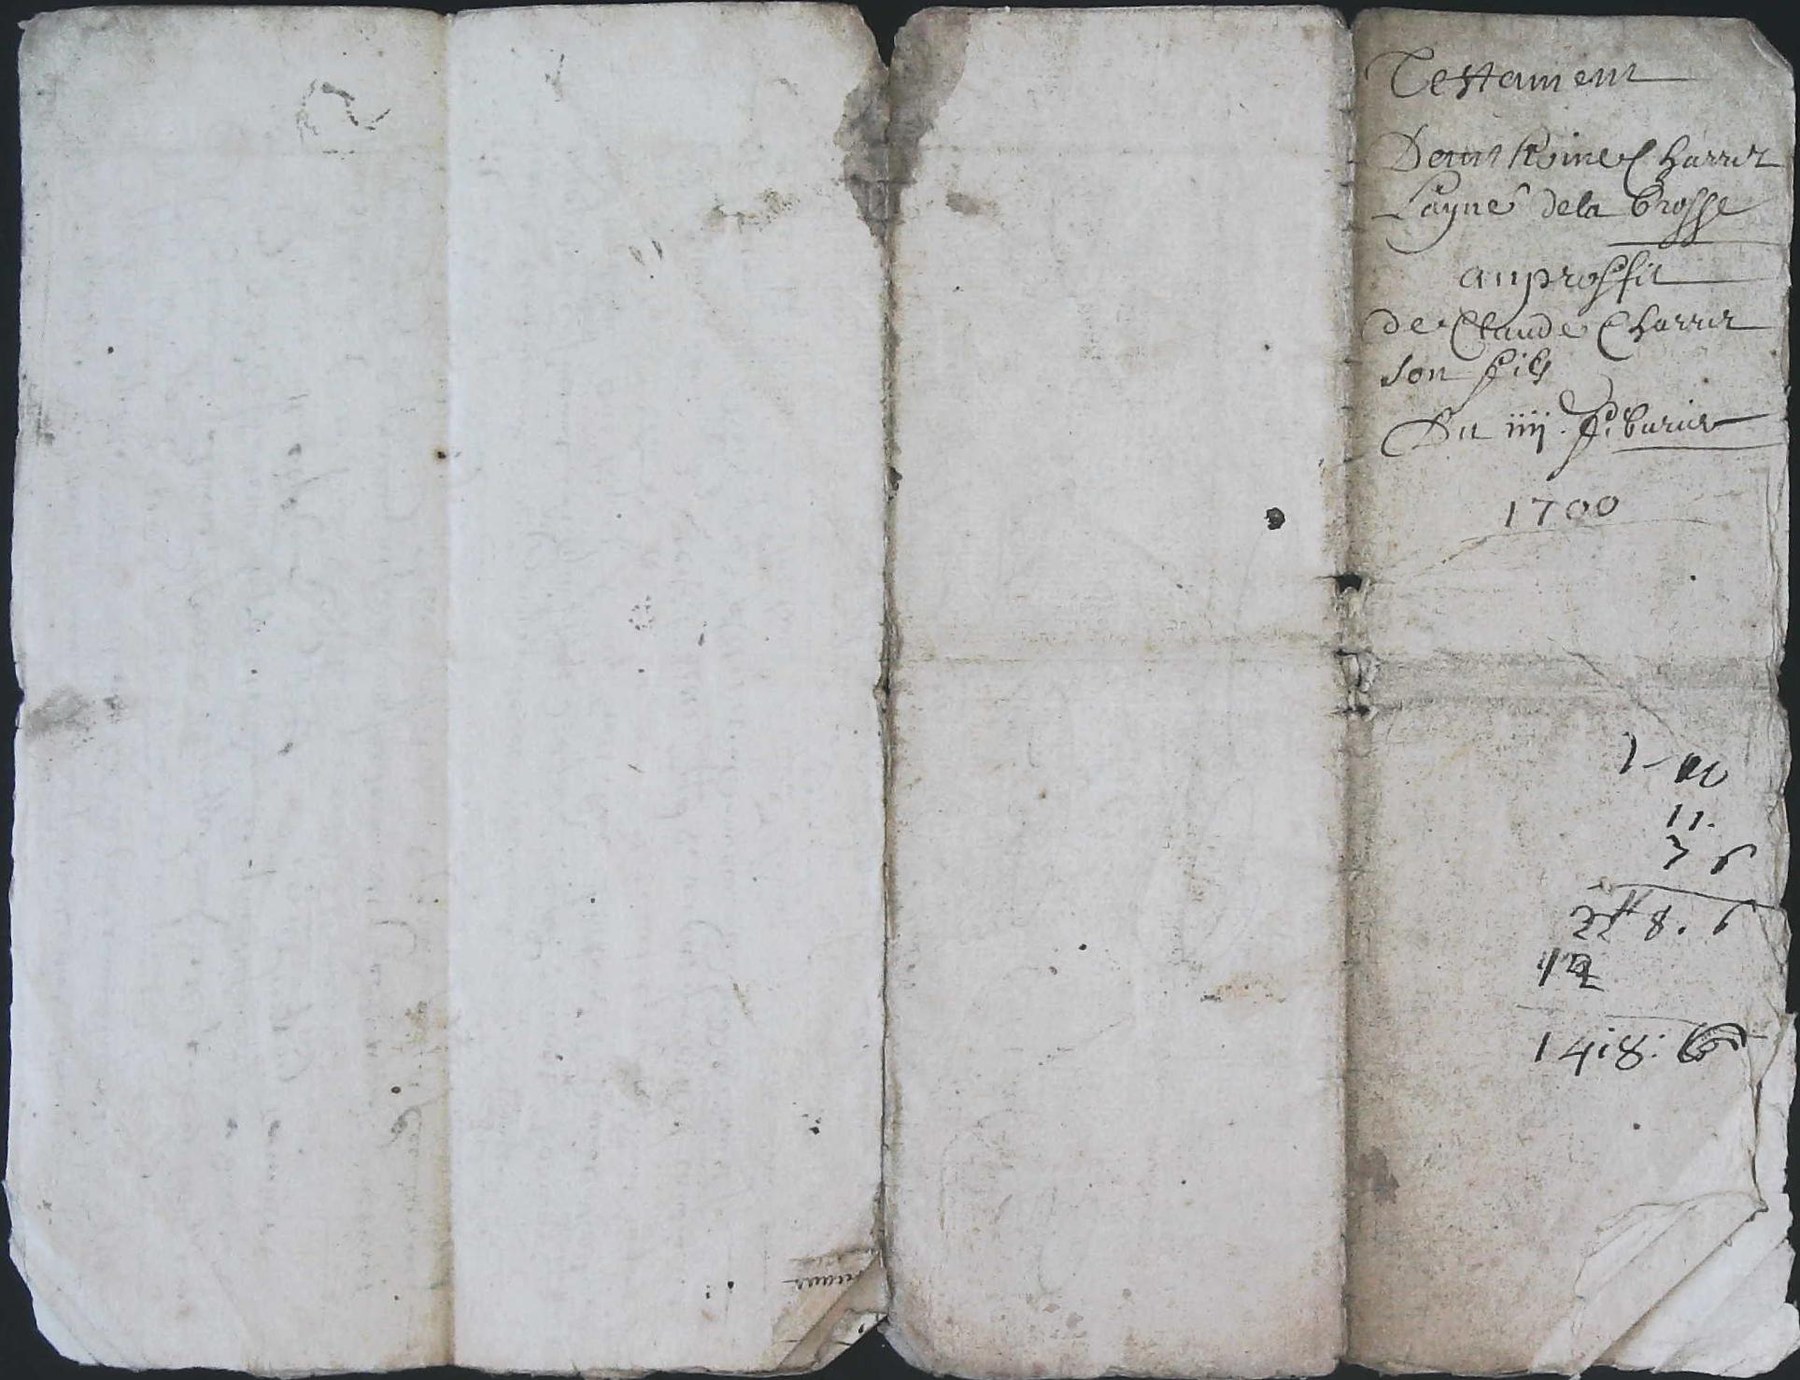 Testament
Danthoine Charret
Layné dela brosse
auproffit
de Claude Charret
son fils
Du iiij. febvrier
1700
1 - 10
11.
7 6
2ᵗᵗ 8. 6
12
14 : 8 : 6